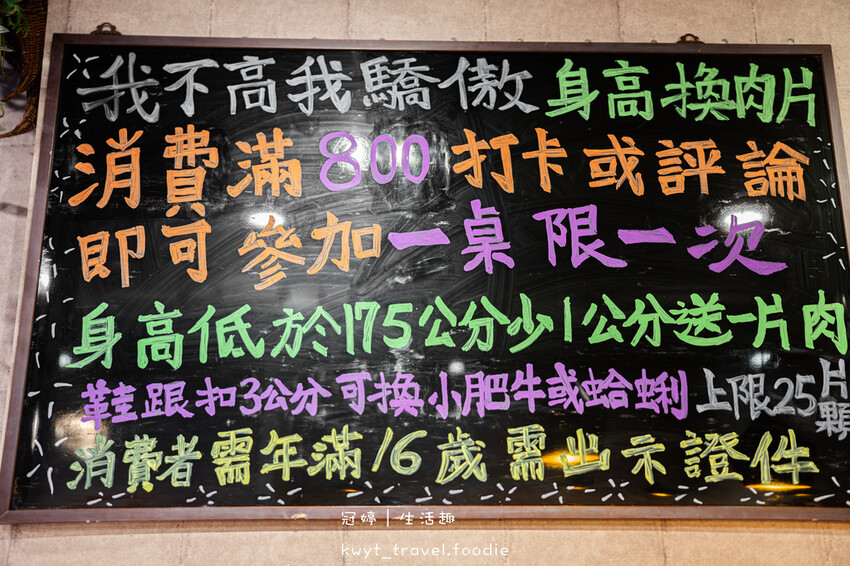 我不高我驕傲 身高換肉片
消費滿800打卡或評論
即可參加一桌限一次
身高低於175公分少1公分送一片肉
鞋跟扣3公分可換小肥牛或蛤蜊 上限25片顆
消費者需年滿16歲需出示證件
冠婷|生活趣
kwyt_travel.foodie